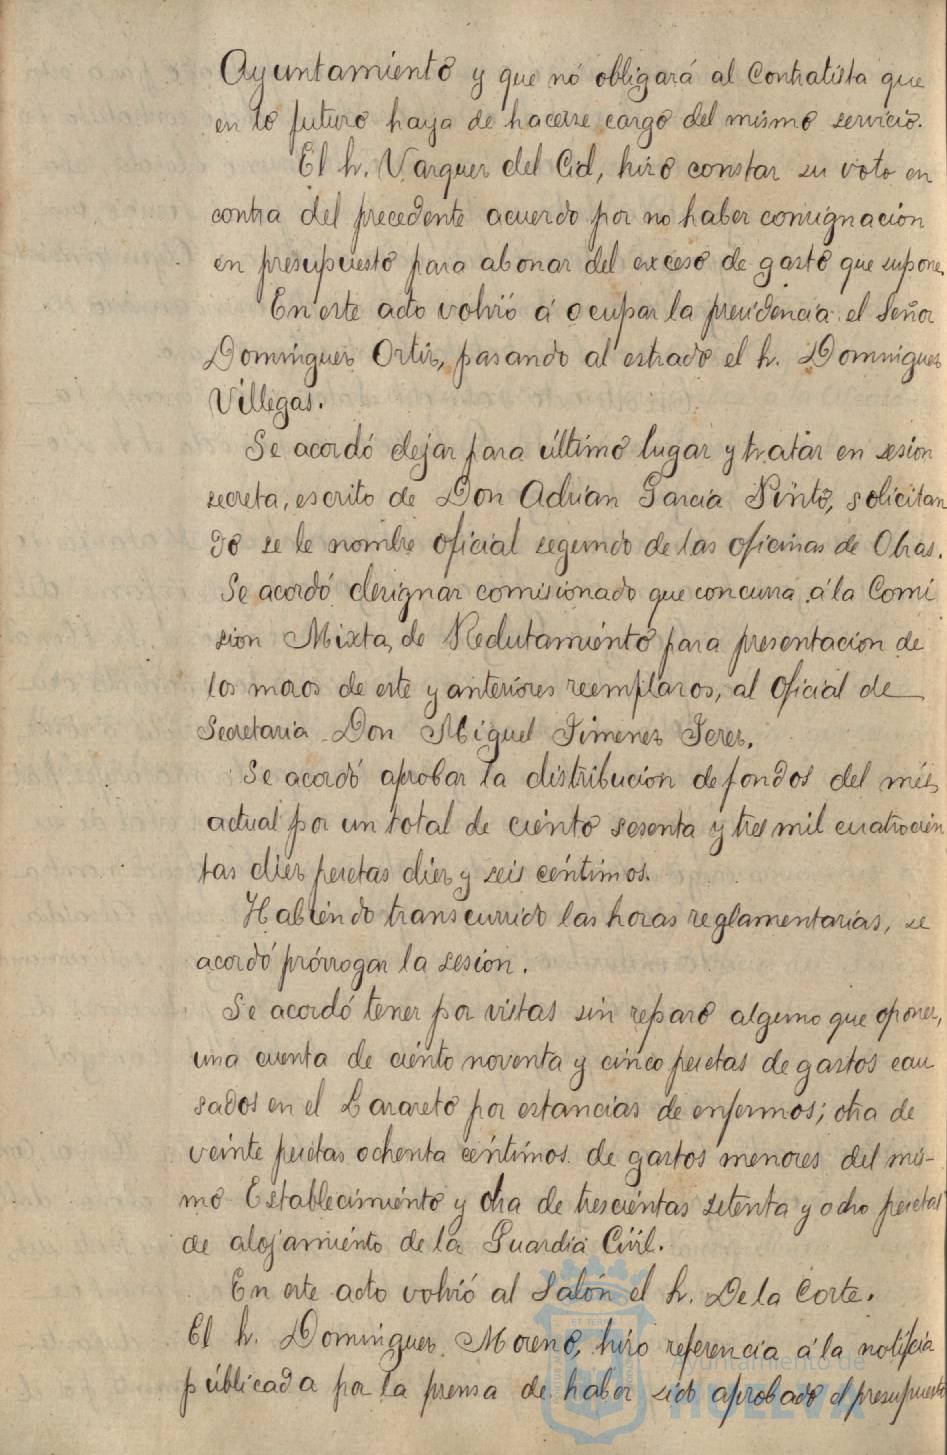 Ayuntamiento y que nó obligará al Contratista que
en lo futuro haya de hacerse cargo del mismo servicio.
El Sr. Vazquez del Cid, hizo constar su voto en
contra del precedente acuerdo por no haber consignacion
en presupuesto para abonar del exceso de gasto que supone.
En este acto volvió á ocupar la presidencia el Señor
Dominguez Ortiz, pasando al estrado el Sr. Dominguez
Villegas.
Se acordó dejar para último lugar y tratar en sesion
secreta, escrito de Don Adrian Garcia Pinto, solicitan
do se le nombre oficial segundo de las oficinas de Obras.
Se acordó designar comisionado que concurra á la Comi
sion Mixta de Reclutamiento para presentacion de
los mozos de este y anteriores reemplazos, al Oficial de
Secretaria Don Miguel Jimenez Jerez.
Se acordó aprobar la distribucion de fondos del més
actual por un total de ciento sesenta y tres mil cuatrocien
tas diez pesetas diez y seis céntimos.
Habiendo transcurrido las horas reglamentarias, se
acordó prórrogar la sesion.
Se acordó tener por vistas sin reparo alguno que oponer,
una cuenta de ciento noventa y cinco pesetas de gastos cau
sados en el Lazareto por estancias de enfermos; otra de
veinte pesetas ochenta céntimos de gastos menores del mis-
mo Establecimiento y otra de trescientas setenta y ocho pesetas
de alojamiento de la Guardia Civil.
En este acto volvió al Salón el Sr. De la Corte.
El Sr. Dominguez Moreno, hizo referencia á la notificia
públicada por la prensa de haber sido aprobado el presupuesto
Ayuntamiento de
HUELVA